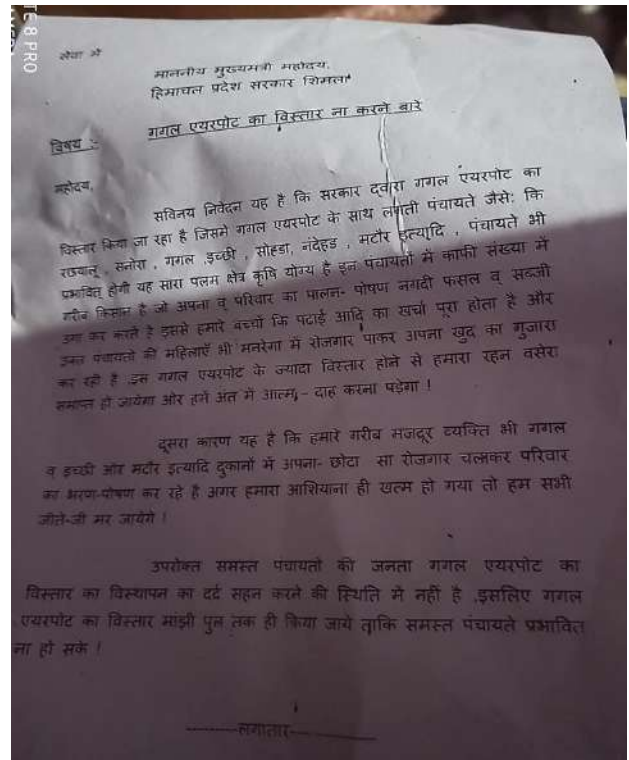 TE 8 PRO
सेवा में
माननीय मुख्यमंत्री महोदय,
हिमाचल प्रदेश सरकार शिमला
विषय :- गगल एयरपोट का विस्तार ना करने बारे
महोदय,
सविनय निवेदन यह है कि सरकार दवारा गगल एयरपोट का
विस्तार किया जा रहा है जिसमे गगल एयरपोट के साथ लगती पंचायते जैसे: कि
रछयालू , सनोरा , गगल इच्छी , सोहडा, नंदेहड , मटौर इत्यादि , पंचायते भी
प्रभावित होगी यह सारा पलम क्षेत्र कृषि योग्य है इन पंचायतों में काफी संख्या मे
गरीब किसान है जो अपना व् परिवार का पालन- पोषण नगदी फसल व सब्जी
उगा कर करते है इससे हमारे बच्चों कि पढाई आदि का खर्चा पूरा होता है और
उक्त पंचायतो की महिलाएँ भी मनरेगा में रोजगार पाकर अपना खुद का गुजारा
कर रही है .इस गगल एयरपोट के ज्यादा विस्तार होने से हमारा रहन वसेरा
समाप्त हो जायेगा ओर हमें अंत में आत्म – दाह करना पड़ेगा !
दूसरा कारण यह है कि हमारे गरीब मजदूर व्यक्ति भी गगल
व इच्छी ओर मटौर इत्यादि दुकानों में अपना- छोटा सा रोजगार चलाकर परिवार
का भरण-पोषण कर रहे है अगर हमारा आशियाना ही खत्म हो गया तो हम सभी
जीते-जी मर जायेगे !
उपरोक्त समस्त पंचायतो की जनता गगल एयरपोट का
विस्तार का विस्थापन का दर्द सहन करने की स्थिति में नहीं है .इसलिए गगल
एयरपोट का विस्तार मांझी पुल तक ही किया जाये ताकि समस्त पंचायते प्रभावित
ना हो सके !
---------लगातार-----------